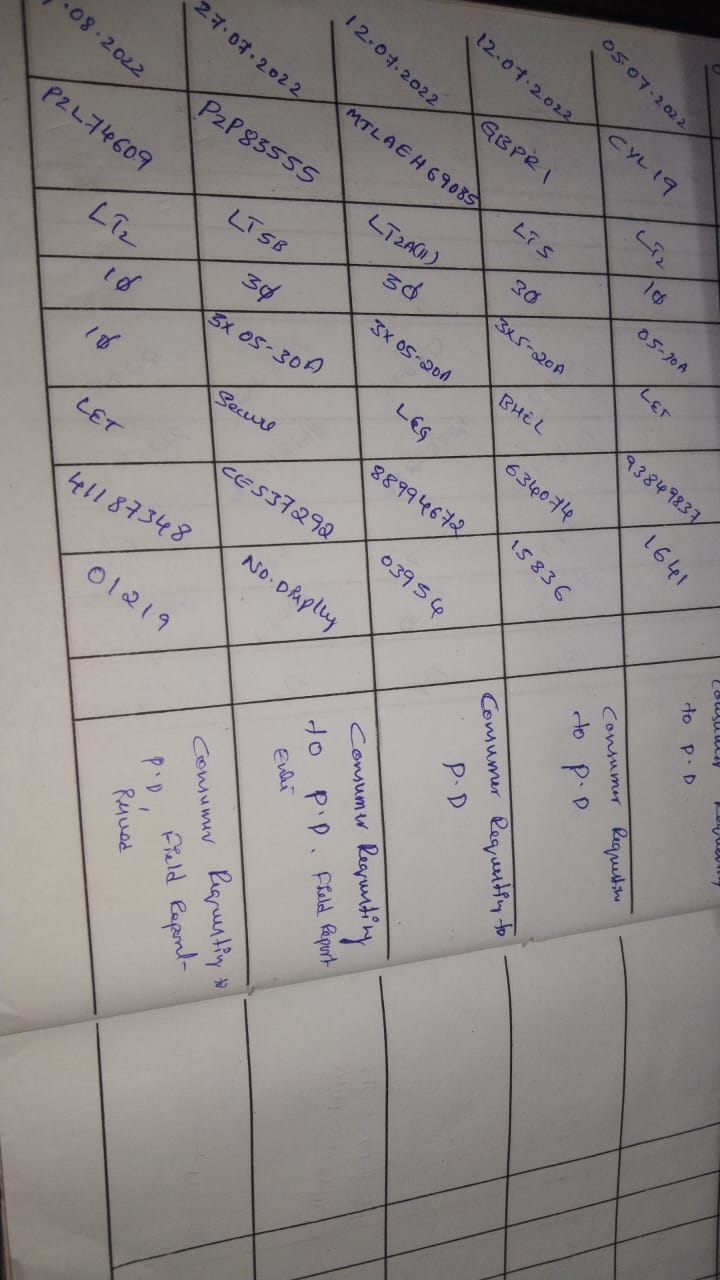 05.07.2022
CYL19
LT2
1ϕ
05-30A
LET
93849837
1641
to P.D
12.07.2022
GBPR1
LT5
3ϕ
3x5-20A
BHEL
634074
15836
Consumer Requestin
to P.D
12.07.2022
MTLAEH69085
LT2A(II)
3ϕ
3x05-20A
L&G
88994672
03954
Consumer Requesting to
P.D
27.07.2022
P2P83555
LT5B
3ϕ
3x05-30A
Secure
CES37292
No. Display
Consumer Requesting
to P.D. Field Report
08.2022
P2L74609
LT2
1ϕ
1ϕ
LET
41187348
01219
Consumer Requesting to
P.D, Field Report